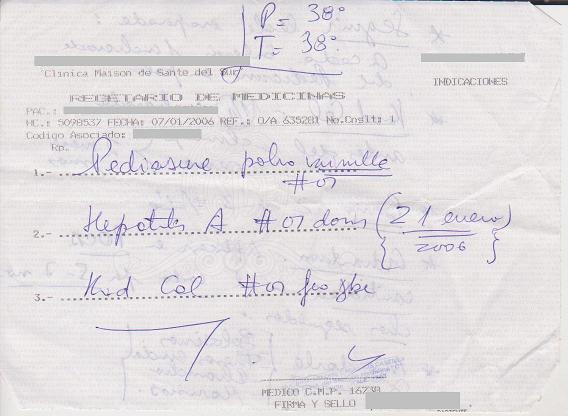 P = 38°
T = 38°
Clinica Maison de Sante del Sur
INDICACIONES
RECETARIO DE MEDICINAS
PAC.:
HC.: 5098537 FECHA: 07/01/2006 REF.: O/A 635281 No.Cnslt: 1
Codigo Asociado:
Rp.
1.- Pediasure polvo vainilla
#01
2.- Hepatitis A #01 dosis (21 enero)
{2006}
3.- Kid Cal #01
MEDICO C.M.P. 16239
FIRMA Y SELLO